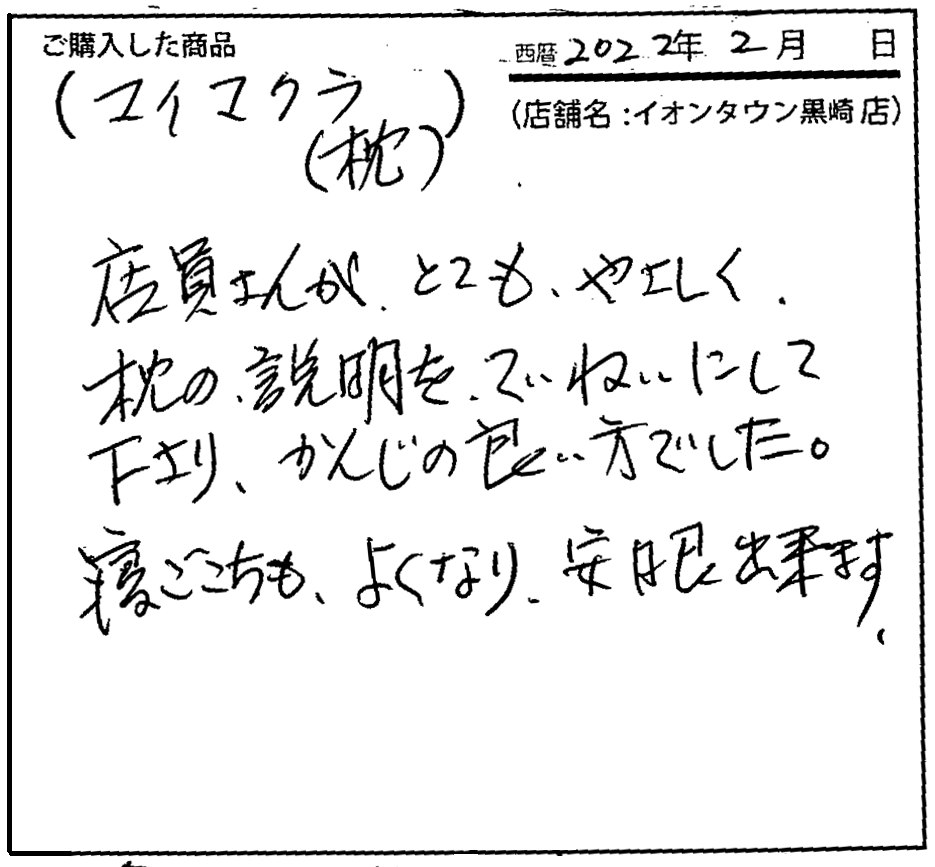 ご購入した商品
西暦 2022年 2月 日
(マイマクラ)
(枕)
(店舗名:イオンタウン黒崎店)
店員さんが、とても、やさしく、
枕の、説明を、ていねいにして
下さり、かんじの良い方でした。
寝ごこちも、よくなり、安眠出来ます、